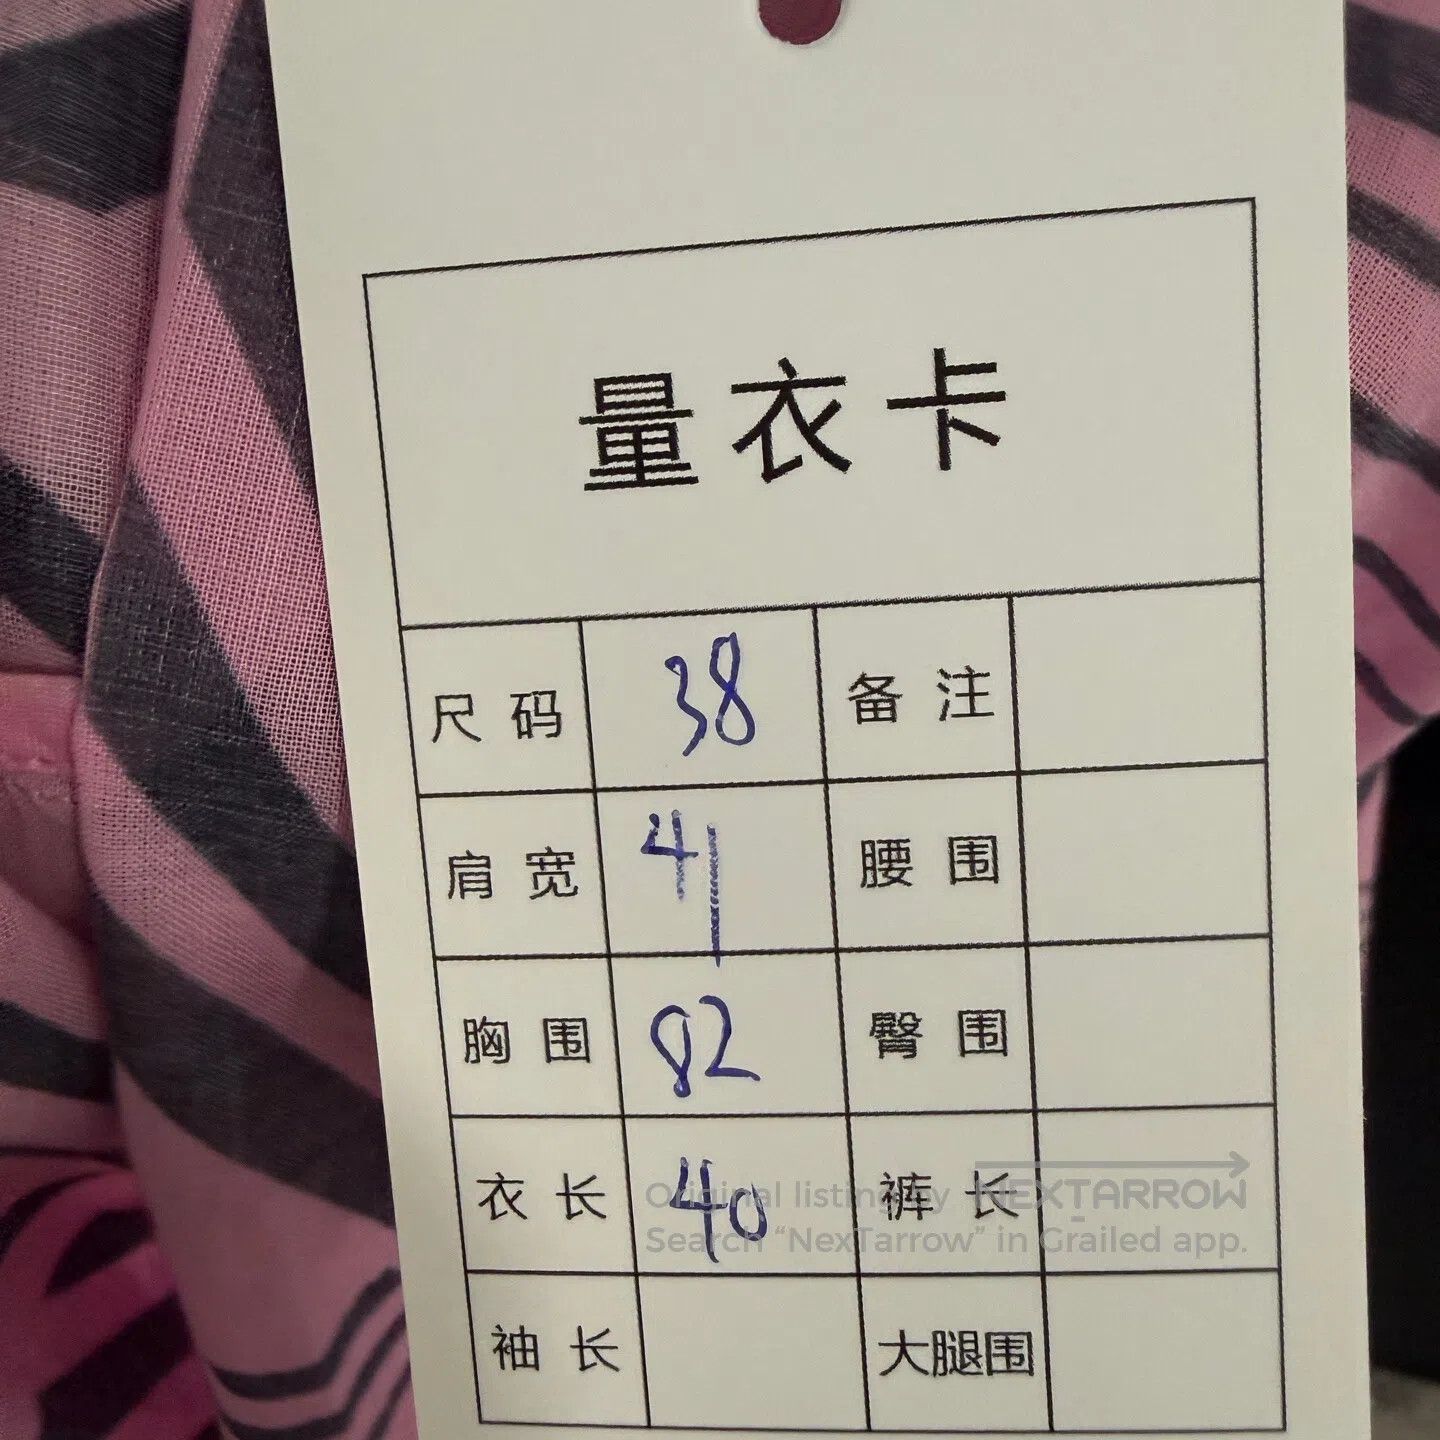 量衣卡
尺码 38 备注
肩宽 41 腰围
胸围 82 臀围
衣长 40 裤长
袖长 大腿围
Original listing by NEXTARROW
Search “NexTarrow” in Grailed app.